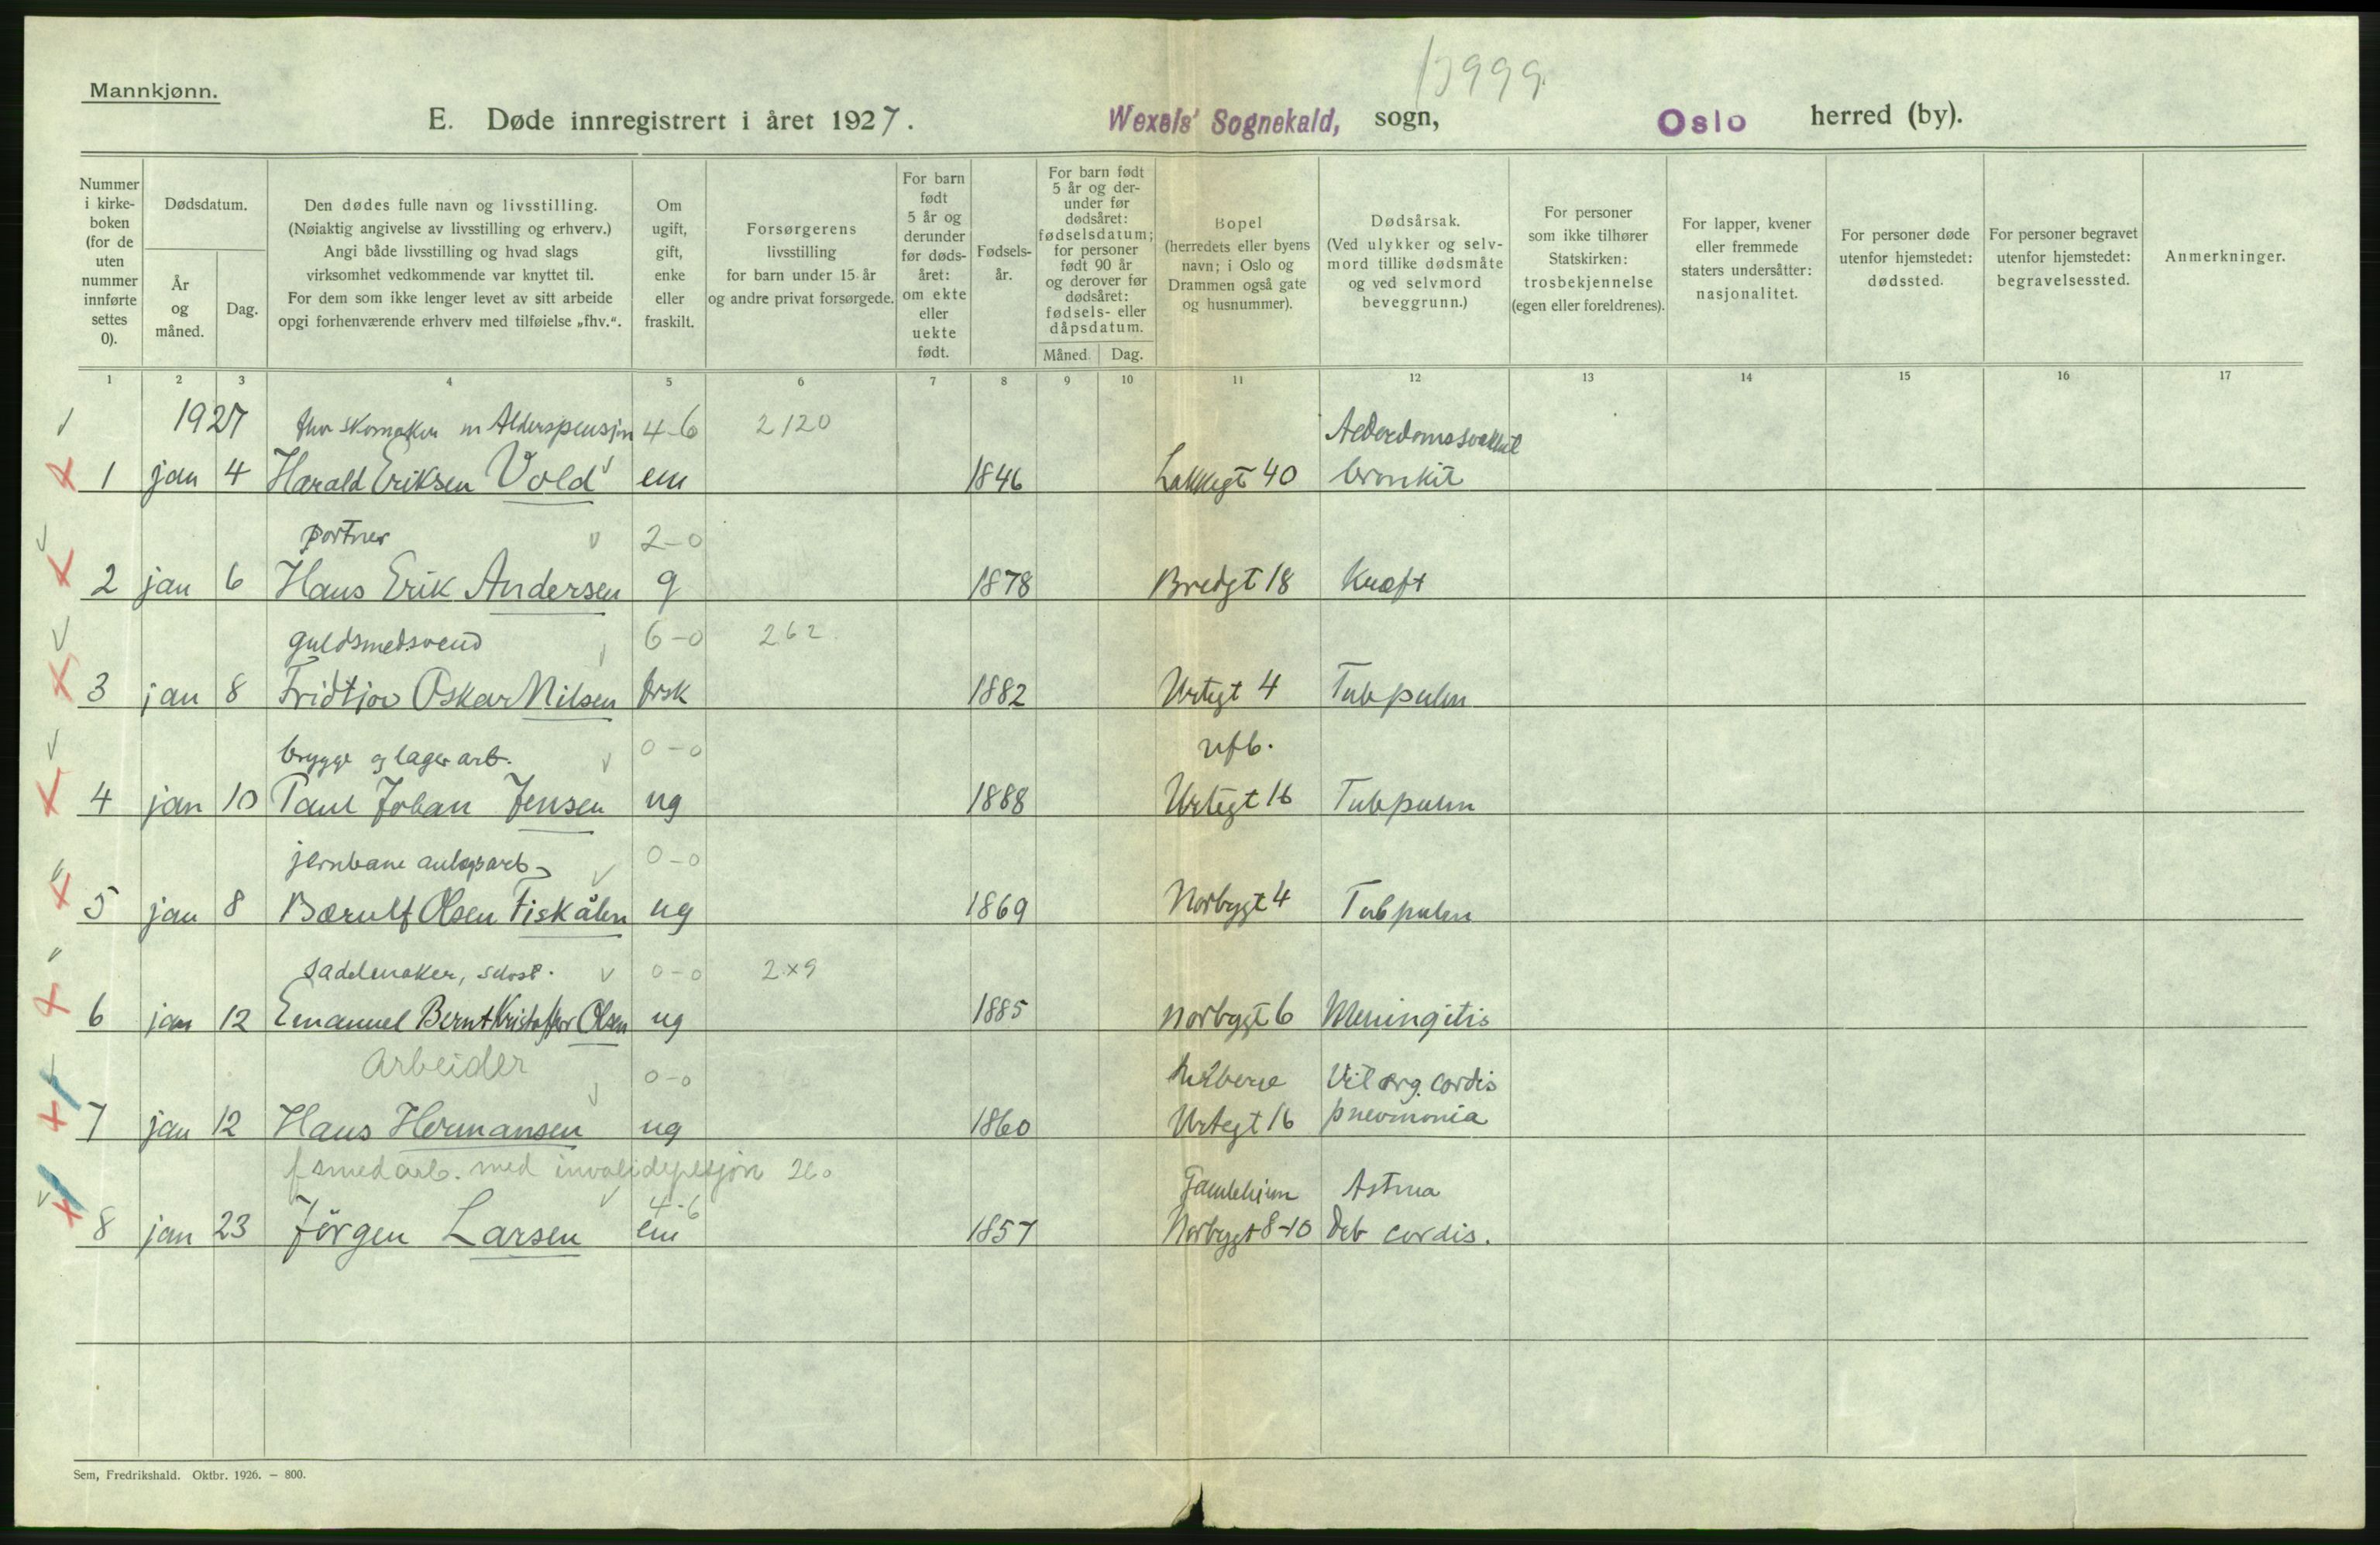 Mannkjønn.
E. Døde innregistrert i året 1927.
Wexels' Sognekald, sogn,
Oslo herred (by).
Nummer i kirke-boken (for de uten nummer innførte settes 0).
Dødsdatum.
År og måned.
Dag.
Den dødes fulle navn og livsstilling.
(Nøiaktig angivelse av livsstilling og erhverv.)
Angi både livsstilling og hvad slags
virksomhet vedkommende var knyttet til.
For dem som ikke lenger levet av sitt arbeide
opgi forhenværende erhverv med tilføielse „fhv.“.
Om ugift, gift, enke eller fraskilt.
Forsørgerens
livsstilling
for barn under 15 år
og andre privat forsørgede.
For barn født 5 år og derunder før døds-året: om ekte eller uekte født.
Fødsels-år.
For barn født 5 år og der-under før dødsåret: fødselsdatum; for personer født 90 år og derover før dødsåret: fødsels- eller dåpsdatum.
Måned. Dag.
Bopel
(herredets eller byens
navn; i Oslo og
Drammen også gate
og husnummer).
Dødsårsak.
(Ved ulykker og selv-
mord tillike dødsmåte
og ved selvmord
beveggrunn.)
For personer
som ikke tilhører
Statskirken:
trosbekjennelse
(egen eller foreldrenes).
For lapper, kvener
eller fremmede
staters undersåtter:
nasjonalitet.
For personer døde
utenfor hjemstedet:
dødssted.
For personer begravet
utenfor hjemstedet:
begravelsessted.
Anmerkninger.
1 2 3 4 5 6 7 8 9 10 11 12 13 14 15 16 17
1927 skomaker m Alderspensjon 4-6 2120
1 jan 4 Harald Eriksen Vold em 1846 Lakkegt 40 bronkit
portner 2-0
2 jan 6 Hans Erik Andersen g 1878 Bredgt 18 Kræft
guldsmedsvend 6-0 262
3 jan 8 Fridtjov Oskar Nilsen frsk 1882 Urtegt 4 Tub pulm
brygge og lager arb. 0-0 ufb.
4 jan 10 Paul Johan Jensen ug 1888 Urtegt 16 Tub pulm
jernbane anlegsarb 0-0
5 jan 8 Bærulf Olsen Fiskålen ug 1869 Norbygt 4 Tub pulm
Sadelmaker, selvst. 0-0 2x9
6 jan 12 Emanuel Bernt Kristoffer Olsen ug 1885 Norbygt 6 Meningitis
Arbeider 0-0 Vit org. cordis
7 jan 12 Hans Hermansen ug 1860 Urtegt 16 pneumonia
f smedarb. med invalidepesjon 260
4-6 Gamlehjem Astma
8 jan 23 Jörgen Larsen em 1857 Norbygt 8-10 Deb cordis.
Sem, Fredrikshald. Oktbr. 1926. — 800.